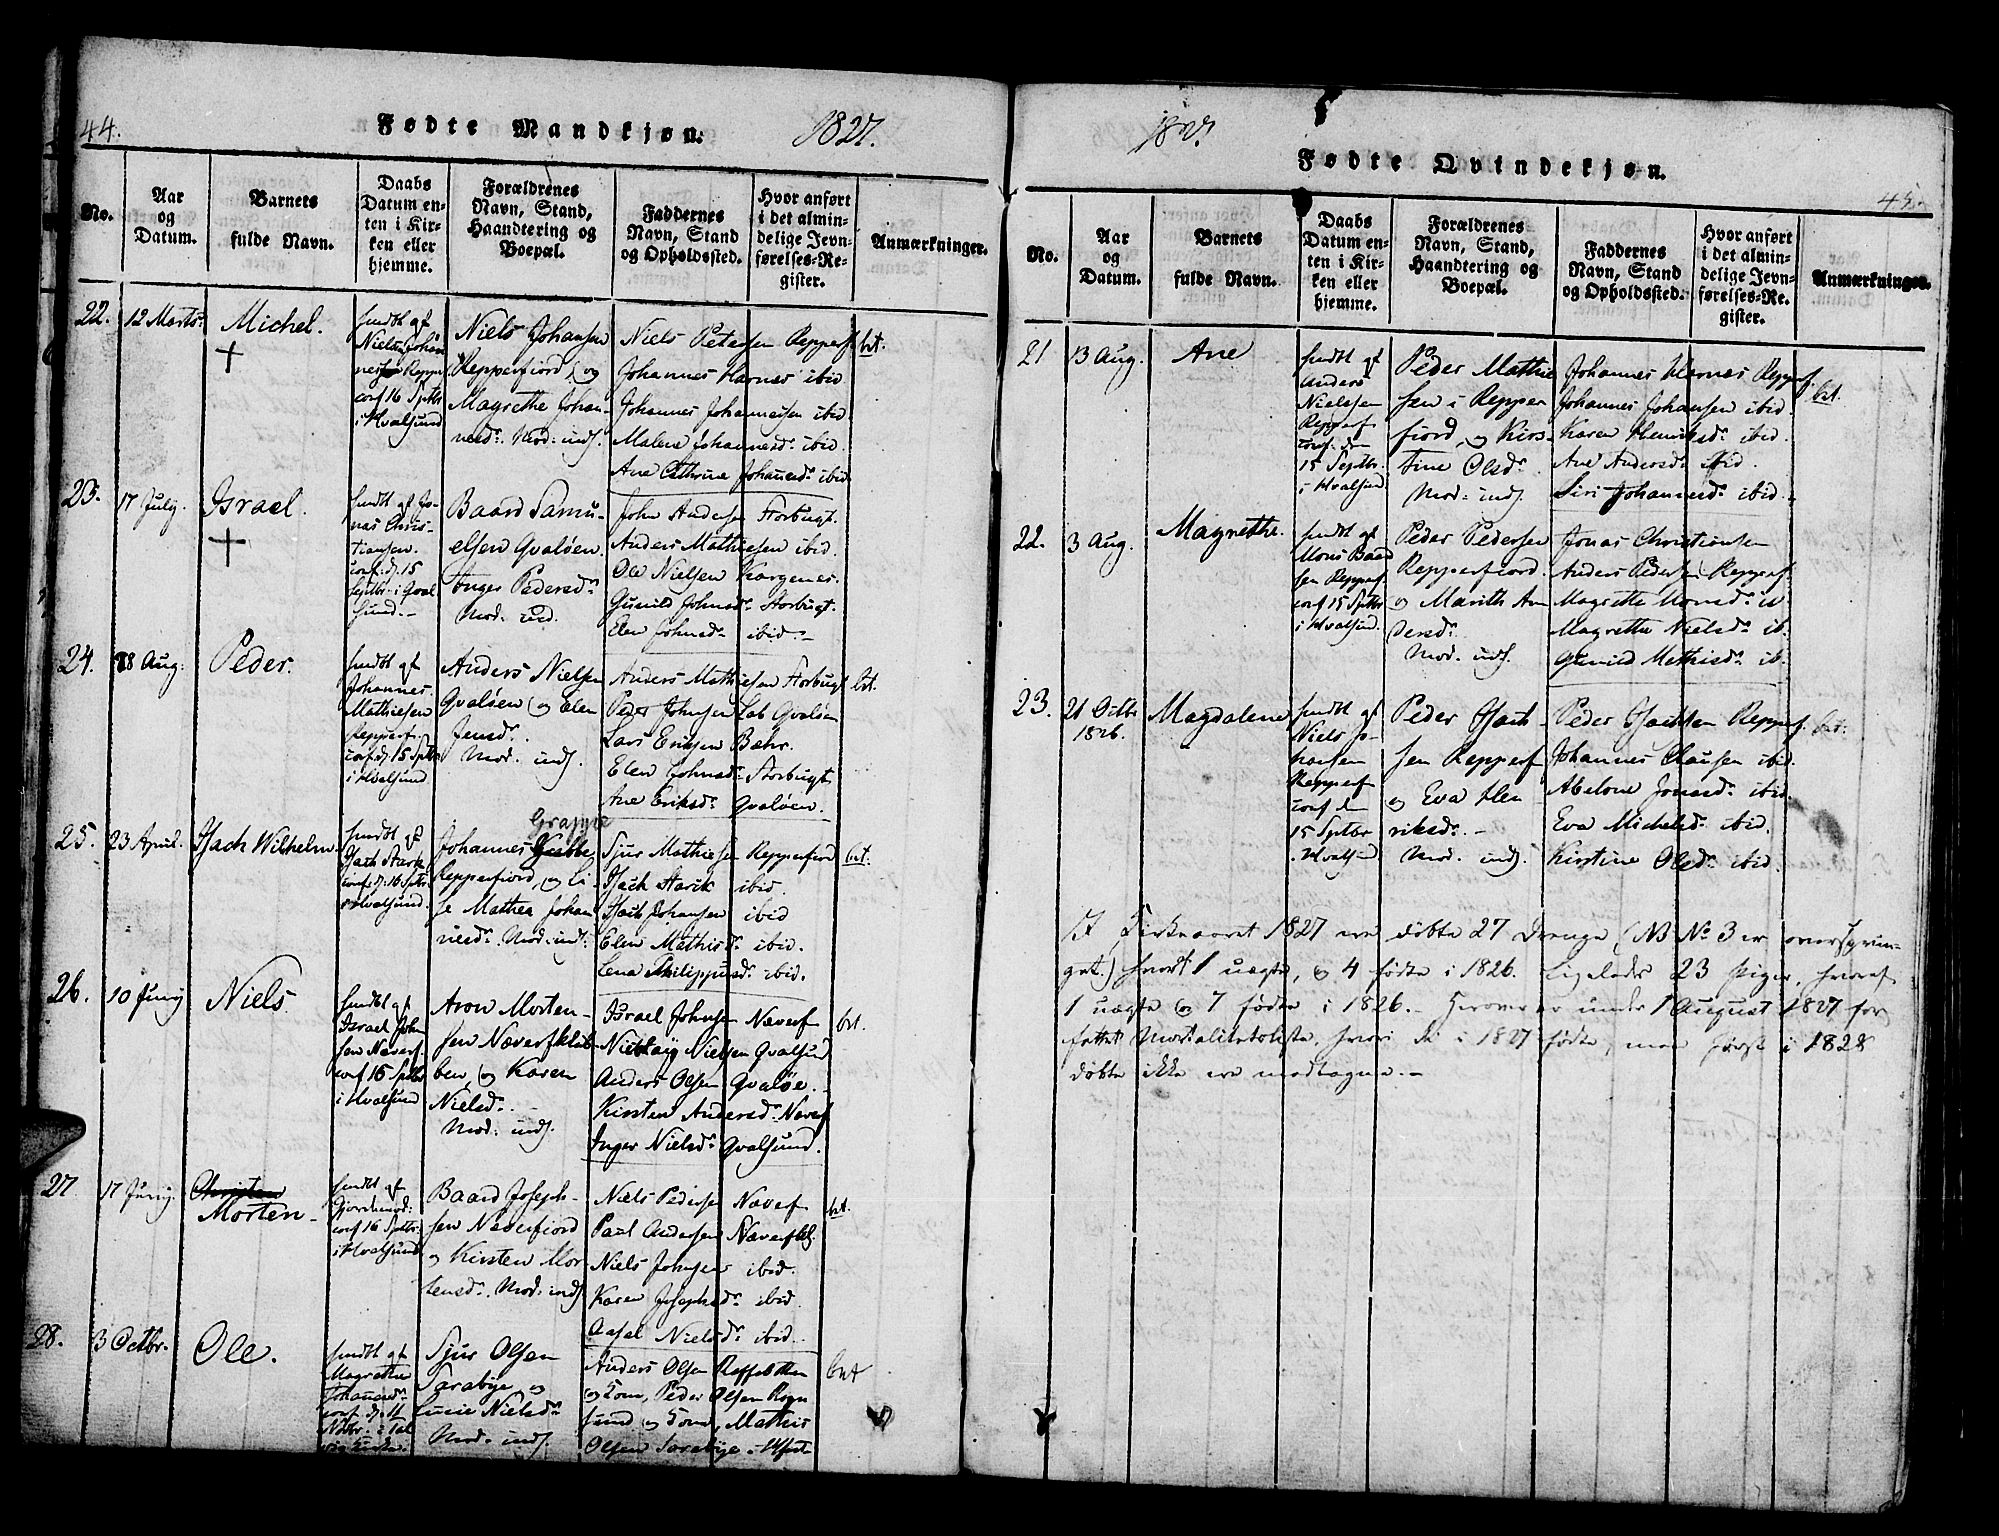 44.
Fødte Mandkjøn.
1827.
No.
Aar
og
Datum.
Barnets
fulde Navn.
Daabs
Datum en-
ten i Kir-
ken eller
hjemme.
Forældrenes
Navn, Stand,
Haandtering og
Boepæl.
Faddernes
Navn, Stand
og Opholdssted.
Hvor anført
i det almin-
delige Jevn-
førelses-Re-
gister.
Anmærkninger.
22.
12 Marts.
Michel.
+
hmdbt af
conf 16 Sptbr
i Hvalsund
Niels Johansen
Repperfiord, og
Magrethe Johan-
nesd. Mod: ind.
Niels Petersen Repperf
Johannes Harnes ibid
Johannes Johannesen ibid
Malene Johannesd. ibid
Ane Cathrine Johannesd. ibid
bt.
23.
17 July.
Israel.
+
hmdbt af Jo-
nas Chris-
tiansen.
conf: d. 15
Septbr. i Qval
sund.
Baard Samu-
elsen Qvaløen
Inger Pedersd.
Mod. ind.
John Andersen Storbugt.
Anders Mathiesen ibid.
Ole Nielsen Kargenes.
Gunild Johnsd. Storbugt.
Elen Johnsd. ibid.
24.
8 Aug:
Peder.
hmdbt af
Johannes
Mathiesen
Repperf.
conf. d. 15 Sptbr
i Hvalsund
Anders Nielsen
Qvaløen og Elen
Jensd.
Mod. ind.
Anders Mathiesen Storbugt
Peder Johnsen Lab Qvaløen
Lars Ericsen Bæhr.
Elen Johnsd. Storbugt
Ane Eriksd. Qvaløen.
bt.
25.
23 April.
Isach Wilhelm
hmdbt af
Isach Stark
conf. d. 16 Sptbr
i Hvalsund.
Grappe
Johannes
Repperfiord, og Li-
se Mathea Johan
nesd. Mod: ind:
Sjur Mathiesen Repperfiord
Isach Starik ibid.
Isach Johansen ibid
Elen Mathisd. ibid.
Lena Philippusd. ibid.
bt.
26.
10 Juny
Niels
hmdbt af
Israel John
sen Næverf.
conf 16 Sptbr
i Hvalsund
Aron Morten-
sen Næverfklub-
ben, og Karen
Nielsd.
Mod. ind.
Israel Johnsen Næverf
Nicolay Nielsen Qvalsund
Anders Olsen Qvaløe.
Kirsten Andersd. Næverf
Inger Nielsd. Qvalsund.
bt.
27.
17 Juny.
Christen
Morten
hmdbt af
Gjordemod:
conf 16 Sptbr
i Hvalsund
Baard Joseph-
sen Næverfiord
og Kirsten Mor
tensd. Mod. ind.
Niels Pedersen Næverf
Paul Andersen Næverfkl.
Niels Johnsen ibid.
Karen Josephsd. ibid.
Aasel Nielsd. ibid.
bt.
28.
3 Octbr.
Ole.
hmdbt af
Magrethe
Johannesd.
conf. d. 11
Sjur Olsen
Sarabye og
Lucie Nielsd.
Mod. ind.
Anders Olsen
og Kone, Peder Olsen
sund og Kone, Mathis
Olsen Sarabye
bt
1827.
Fødte Qvindekjøn.
45.
No.
Aar
og
Datum.
Barnets
fulde Navn.
Daabs
Datum en-
ten i Kir-
ken eller
hjemme.
Forældrenes
Navn, Stand,
Haandtering og
Boepæl.
Faddernes
Navn, Stand
og Opholdssted.
Hvor anført
i det almin-
delige Jevn-
førelses-Re-
gister.
Anmærkninger.
21
13 Aug.
Ane
hmdbt af
Anders
Nielsen
Repperf
conf. den
15 Septbr.
i Hvalsund
Peder Mathie
sen i Repper
fiord, og Kirs-
tine Olsd.
Mod. ind.
Johannes Harnes Repperf.
Johannes Johansen ibid.
Karen Henriksd. ibid.
Ane Andersd. ibid.
Siri Johannesd. ibid.
bt.
22.
3 Aug.
Magrethe.
hmdbt af
Mons Baard
sen Repperf.
conf 15 Sptbr
i Hvalsund.
Peder Pedersen
Repperfiord.
og Marith An
dersd.
Mod. ind.
Jonas Christiansen
Anders Pedersen Repperf.
Magrethe Monsd. ib
Magrethe Nielsd. ib.
Gunild Mathisd. ib.
23.
21 Octbr
1826.
Magdalene
hmdbt af
Niels Jo-
hansen
Repperf
conf den
15 Sptbr
i Hvalsund
Peder Isach-
sen Repperf
og Eva Hen
riksd.
Mod. ind.
Peder Isachsen Repperf.
Johannes Clausen ibid.
Abelone Jonsd. ibid.
Eva Michelsd. ibid.
Kirstine Olsd. ibid.
bt.
I Kirkeaaret 1827 ere døbte 27 Drenge (NB No 3 er oversprun-
get.) hvoraf 1 uægte, og 4 fødte i 1826. Ligeledes 23 Piger, hvoraf
1 uægte og 7 fødte i 1826. Herover er under 1 August 1827 for
fattet Mortalitetsliste, hvori de i 1827 fødte, men først i 1828
døbte ikke ere modtagne.